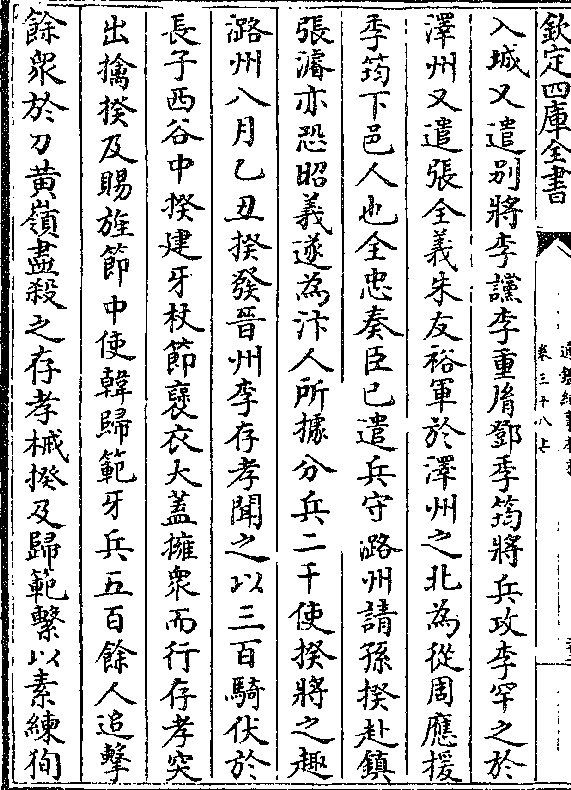 欽定四庫全書
通鑑紀事本末
卷三十八上
入城又遣别將李讜李重𦙍鄧季筠將兵攻李罕之於
澤州又遣張全義朱友裕軍於澤州之北為從周應援
季筠下邑人也全忠奏臣已遣兵守潞州請孫揆赴鎮
張濬亦恐昭義遂為汴人所據分兵二千使揆將之趣
潞州八月乙丑揆發晉州李存孝聞之以三百騎伏於
長子西谷中揆建牙杖節褒衣大蓋擁衆而行存孝突
出擒揆及賜旌節中使韓歸範牙兵五百餘人追擊
餘衆於刀黄嶺盡殺之存孝械揆及歸範繫以素練狥